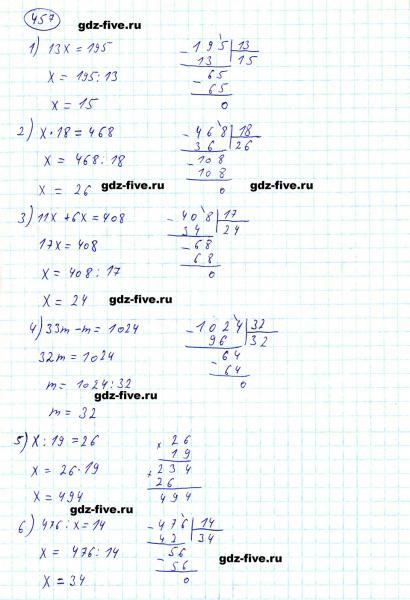 457
gdz-five.ru
1) 13x = 195
- 195 | 13
13 | 15
x = 195 : 13
- 65
65
x = 15
0
2) x · 18 = 468
- 468 | 18
36 | 26
x = 468 : 18
- 108
108
x = 26
gdz-five.ru
0
gdz-five.ru
3) 11x + 6x = 408
- 408 | 17
34 | 24
17x = 408
- 68
68
x = 408 : 17
0
x = 24
gdz-five.ru
4) 33m - m = 1024
- 1024 | 32
96 | 32
32m = 1024
- 64
64
m = 1024 : 32
0
gdz-five.ru
m = 32
5) x : 19 = 26
× 26
19
x = 26 · 19
+ 234
26
x = 494
494
gdz-five.ru
6) 476 : x = 14
- 476 | 14
42 | 34
x = 476 : 14
- 56
56
gdz-five.ru
x = 34
0